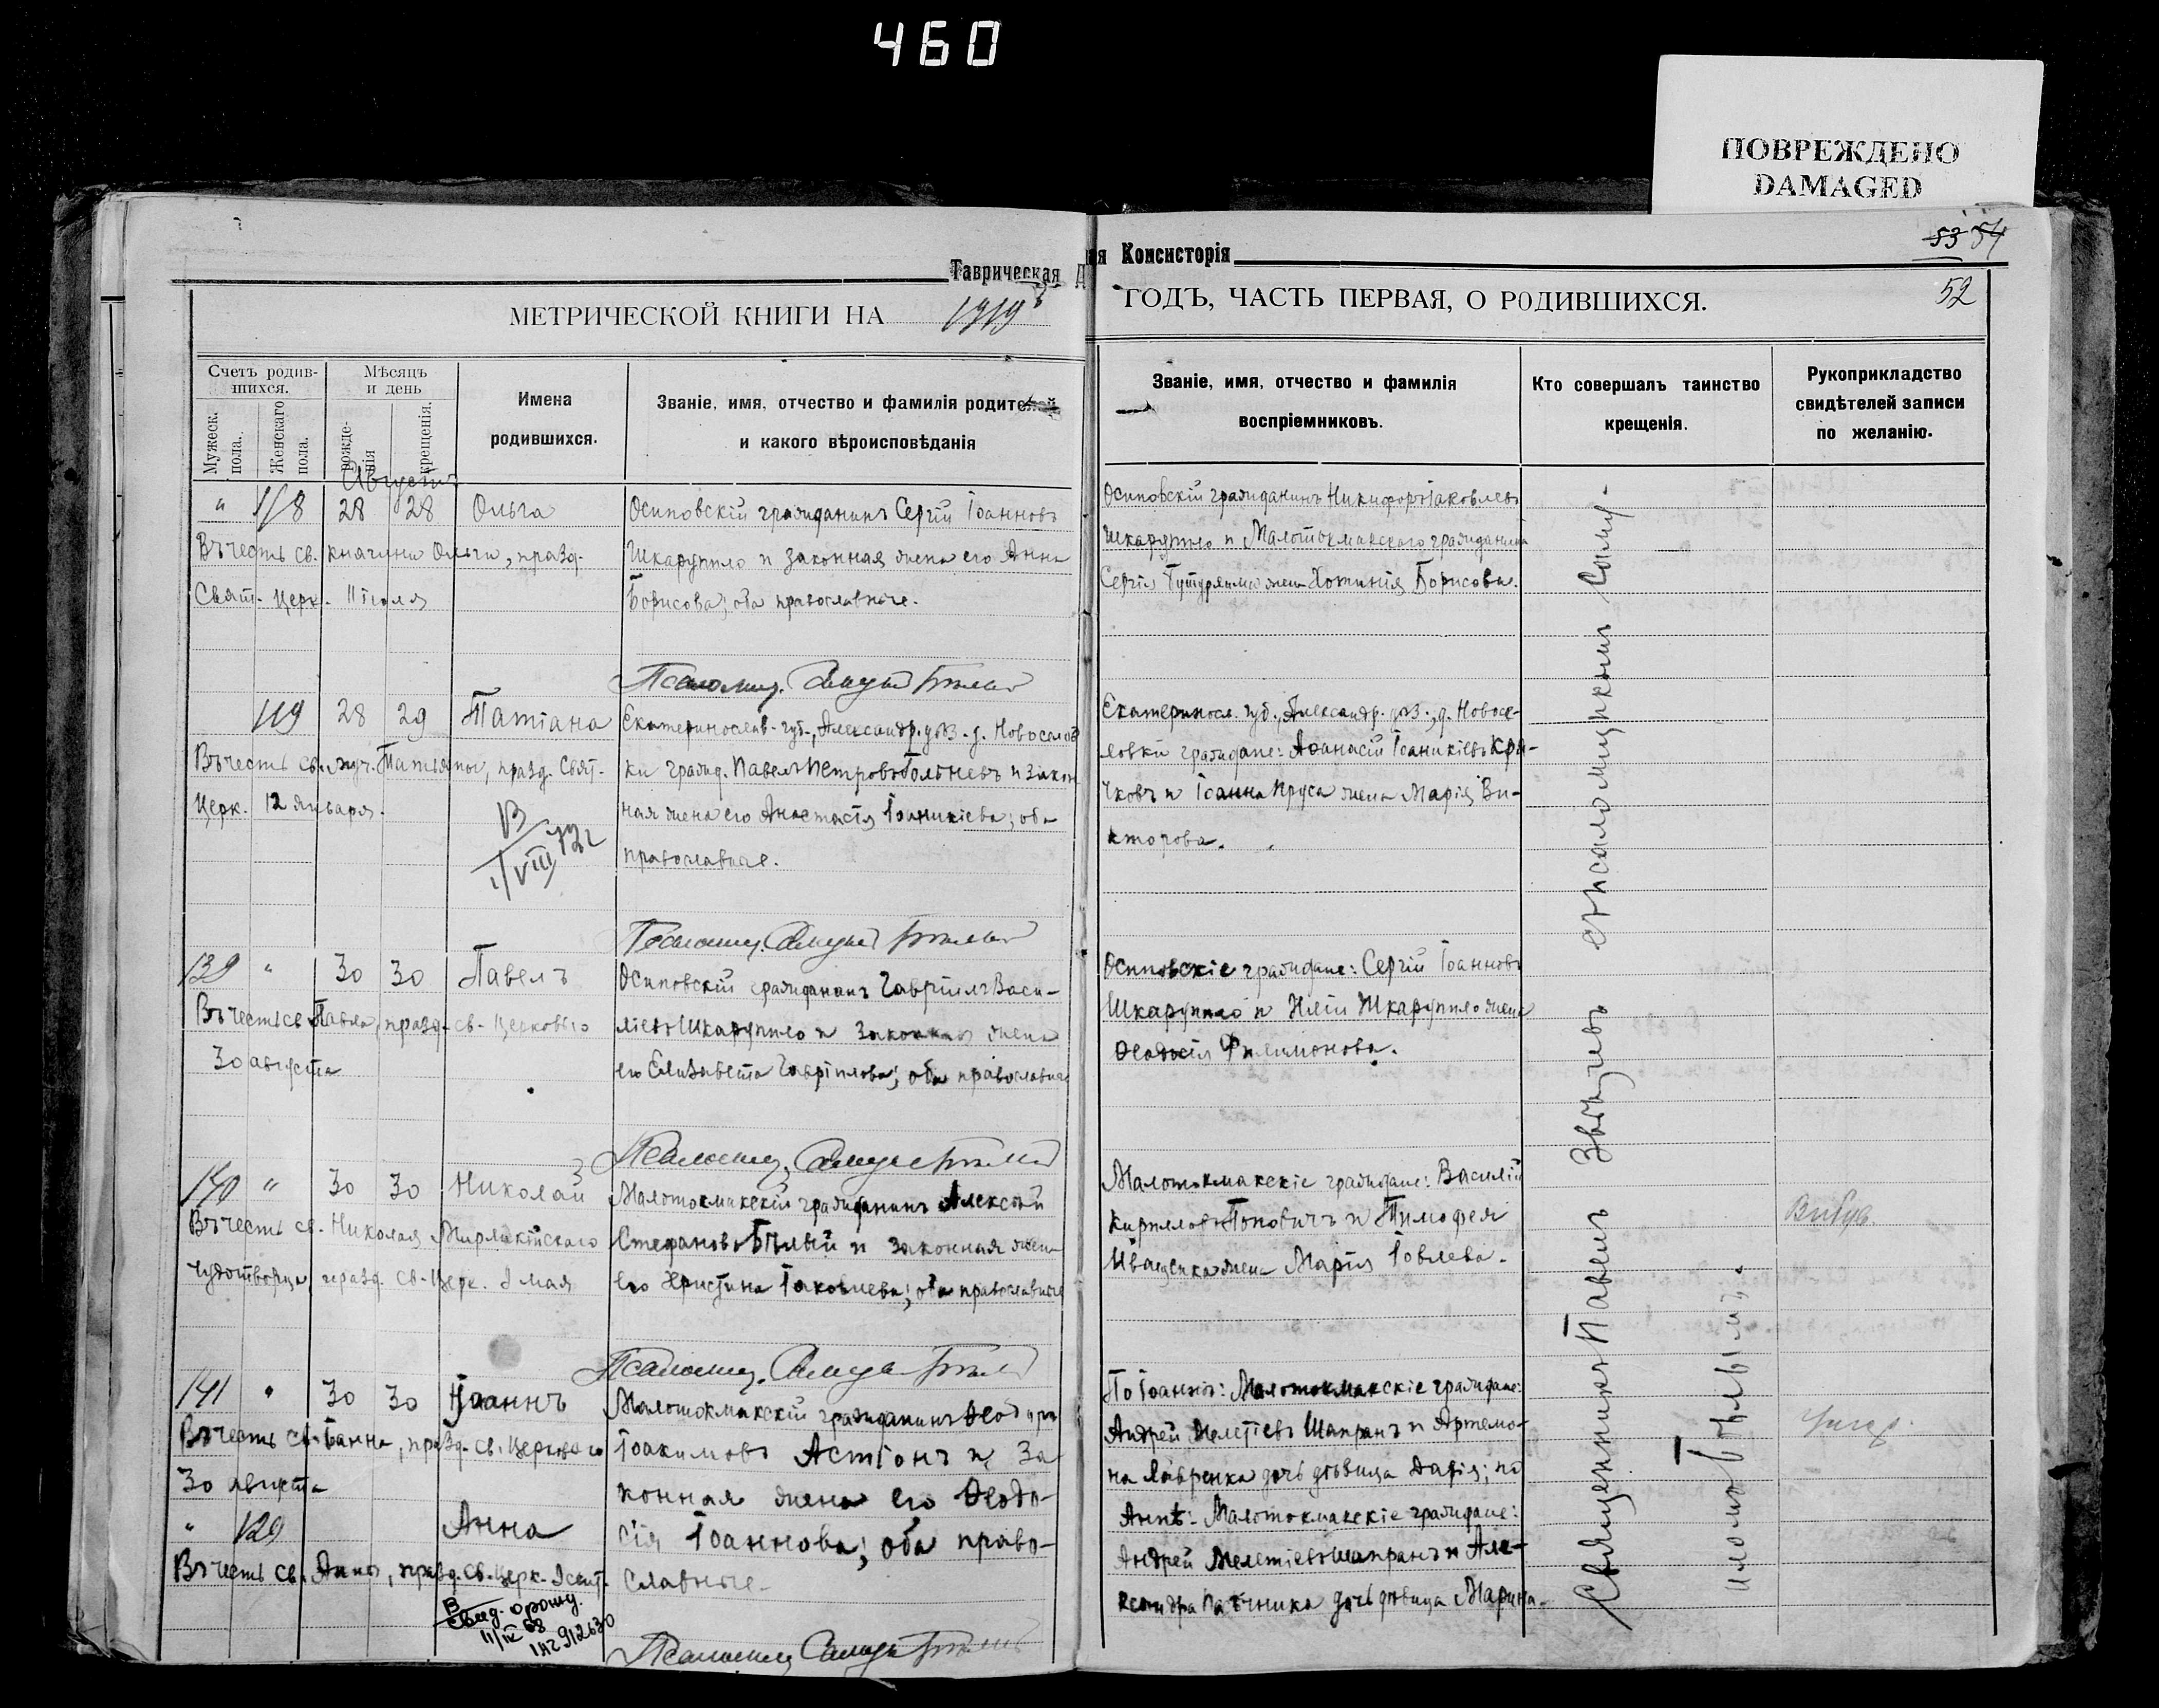 460
ПОВРЕЖДЕНО
DAMAGED
Таврическая Д
МЕТРИЧЕСКОЙ КНИГИ НА 1919
Счетъ родив-
шихся.
Мужеск.
пола.
Женскаго
пола.
Мѣсяцъ
и день
рожде-
нія
крещенія.
Имена
родившихся.
Званіе, имя, отчество и фамилія родителей
и какого вѣроисповѣданія
Августъ
" 118 28 28 Ольга
Въ честь св. княгини Ольги, празд.
Свят. Церк. 11 іюля
Осиповскій гражданинъ Сергій Іоанновъ
Шкарупило и законная жена его Анна
Борисова; оба православные.
Псаломщ.
119 28 29 Татіана
Въ честь св. муч. Татьяны, празд. Свят.
Церк. 12 января.
В
1/VIII 72г
Екатеринослав. губ., Александр. у. д. Новоселов
ки гражд. Павелъ Петровъ и закон
ная жена его Анастасія Іоаникіева; оба
православные.
Псаломщ.
139 " 30 30 Павелъ
Въ честь св. Павла, празд. св. Церковью
30 августа
Осиповскій гражданинъ Гавріилъ Васи-
ліевъ Шкарупило и законная жена
его Елизавета Гавріилова; оба православные
Псаломщ.
140 " 30 30 Николай
Въ честь св. Николая Мирликійскаго
чудотворца, празд. св. Церк. 9 мая
Малотокмакскій гражданинъ Алексѣй
Стефановъ Бѣлый и законная жена
его Христина Іаковлева; оба православные
Псаломщ.
141 " 30 30 Іоаннъ
Въ честь св. Іоанна, празд. св. Церковью
30 августа
" 120 Анна
Въ честь св. Анны, празд. св. Церк. 9 сент.
В
11/IV 68
Малотокмакскій гражданинъ Ѳеодоръ
Іоакимовъ Астіонъ и за
конная жена его Ѳеодо-
сія Іоаннова; оба право-
славные.
Псаломщ.
ая Консисторія
53 54
ГОДЪ, ЧАСТЬ ПЕРВАЯ, О РОДИВШИХСЯ.
52
Званіе, имя, отчество и фамилія
воспріемниковъ.
Кто совершалъ таинство
крещенія.
Рукоприкладство
свидѣтелей записи
по желанію.
Осиповскій гражданинъ Никифоръ Іаковлевъ
Шкарупило и Малотокмакскаго гражданина
Сергія жена Хотинія Борисова.
Екатериносл. губ., Александр. у., д. Новосе-
ловки граждане: Аѳанасій Іоаникіевъ Кря-
чковъ и Іоанна Пруса жена Марія Ви-
кторова.
Осиповскіе граждане: Сергій Іоанновъ
Шкарупило и Иліи Шкарупило жена
Ѳеодосія Филимонова.
Малотокмакскіе граждане: Василій
Кирилловъ Поповичъ и Тимофея
Иващенка жена Марія Іовлева.
По Іоаннѣ: Малотокмакскіе граждане:
Андрей Мелетіевъ Шапранъ и Артемо-
на Лавренка дочь дѣвица Дарія; по
Аннѣ: Малотокмакскіе граждане:
Андрей Мелетіевъ Шапранъ и Але-
ксандра дочь дѣвица Марина.
Священникъ Павелъ Звѣздевъ съ псаломщикомъ
Бѣлымъ.
Выбув
Умер.